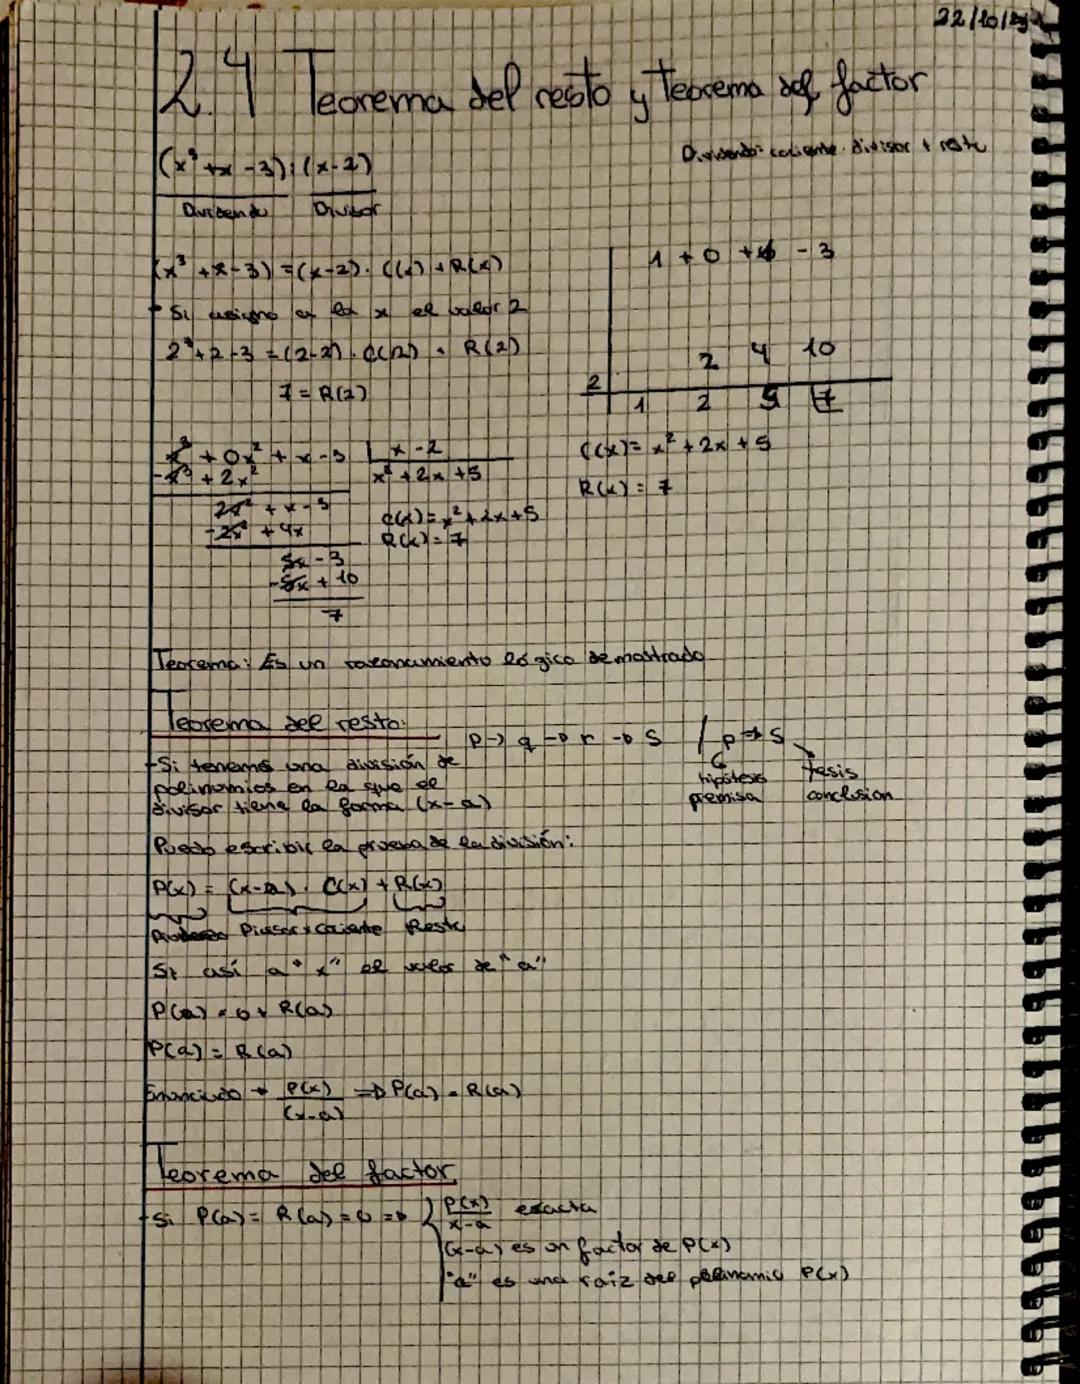 22/10/
2.4 Teorema del resto y Teorema del factor
(x³ + x - 3) : (x - 2)
Dividendo Divisor
Dividendo = cociente · divisor + resto
(x³ + x - 3) = (x - 2) · C(x) + R(x)
Si asigno a la x el valor 2
2³ + 2 - 3 = (2-2) · C(2) + R(2)
7 = R(2)
1 + 0 + 1 - 3
2 4 10
2
1 2 5 7
C(x) = x² + 2x + 5
R(x) = 7
x³ + 0x² + x - 3 | x - 2
-x³ + 2x² x² + 2x + 5
2x² + x - 3
-2x² + 4x
C(x) = x² + 2x + 5
R(x) = 7
5x - 3
-5x + 10
7
Teorema: Es un razonamiento lógico demostrado
Teorema del resto:
p → q → r → s / p → s
hipótesis tesis
premisa conclusion
- Si tenemos una división de
polinomios en la que el
divisor tiene la forma (x - a)
Puedo escribir la prueba de la división:
P(x) = (x - a) · C(x) + R(x)
Divisor x cociente Resto
Si así a "x" el valor de "a"
P(a) = 0 + R(a)
P(a) = R(a)
Enunciado → P(x) / (x-a) ⇒ P(a) = R(a)
Teorema del factor
- Si P(a) = R(a) = 0 ⇒ { P(x) / x-a exacta
(x-a) es un factor de P(x)
"a" es una raíz del polinomio P(x)